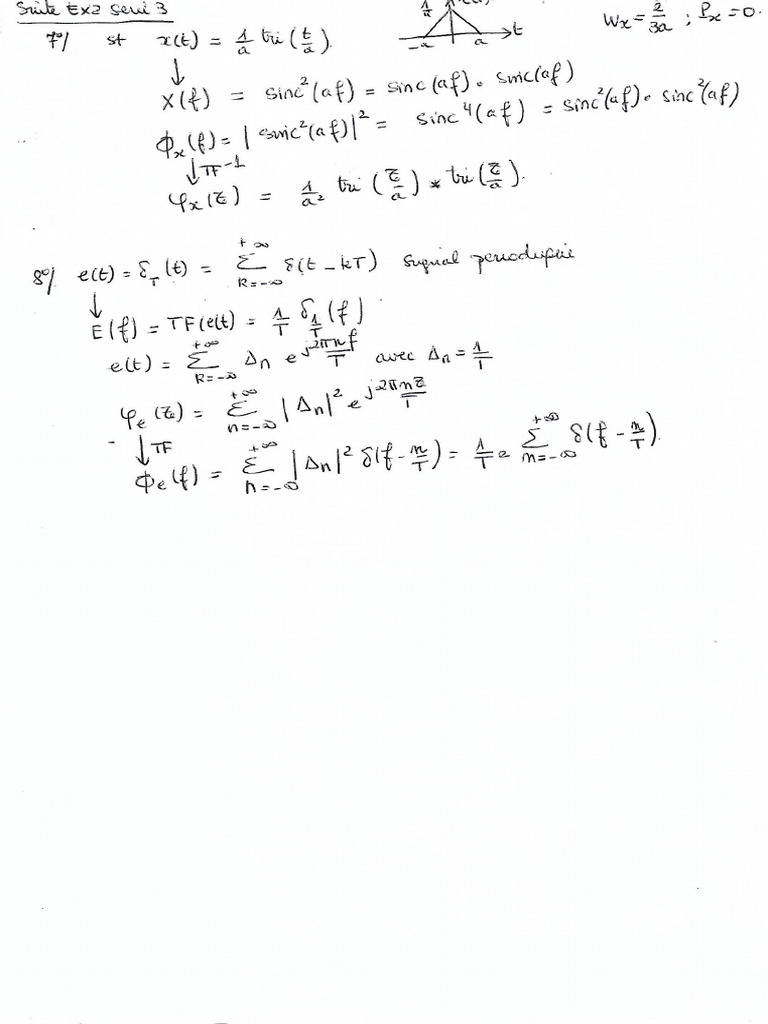 Suite Ex2 Serie 3
Wx = 2/3a ; Px = 0.
7°/ st x(t) = 1/a tri(t/a). 1/a -a a t
↓
X(f) = sinc²(af) = sinc(af) • sinc(af)
ϕx(f) = | sinc²(af)|² = sinc⁴(af) = sinc²(af) • sinc²(af)
↓ TF⁻¹
φx(τ) = 1/a² tri(τ/a) * tri(τ/a).
8°/ e(t) = δT(t) = Σ_{k=-∞}^{+∞} δ(t - kT) Signal periodique
↓
E(f) = TF(e(t) = 1/T δ_{1/T}(f)
e(t) = Σ_{k=-∞}^{+∞} Δn e^{j2πnf/T} avec Δn = 1/T
φe(τ) = Σ_{n=-∞}^{+∞} |Δn|² e^{j2πnτ/T}
↓ TF
ϕe(f) = Σ_{n=-∞}^{+∞} |Δn|² δ(f - n/T) = 1/T² Σ_{n=-∞}^{+∞} δ(f - n/T).